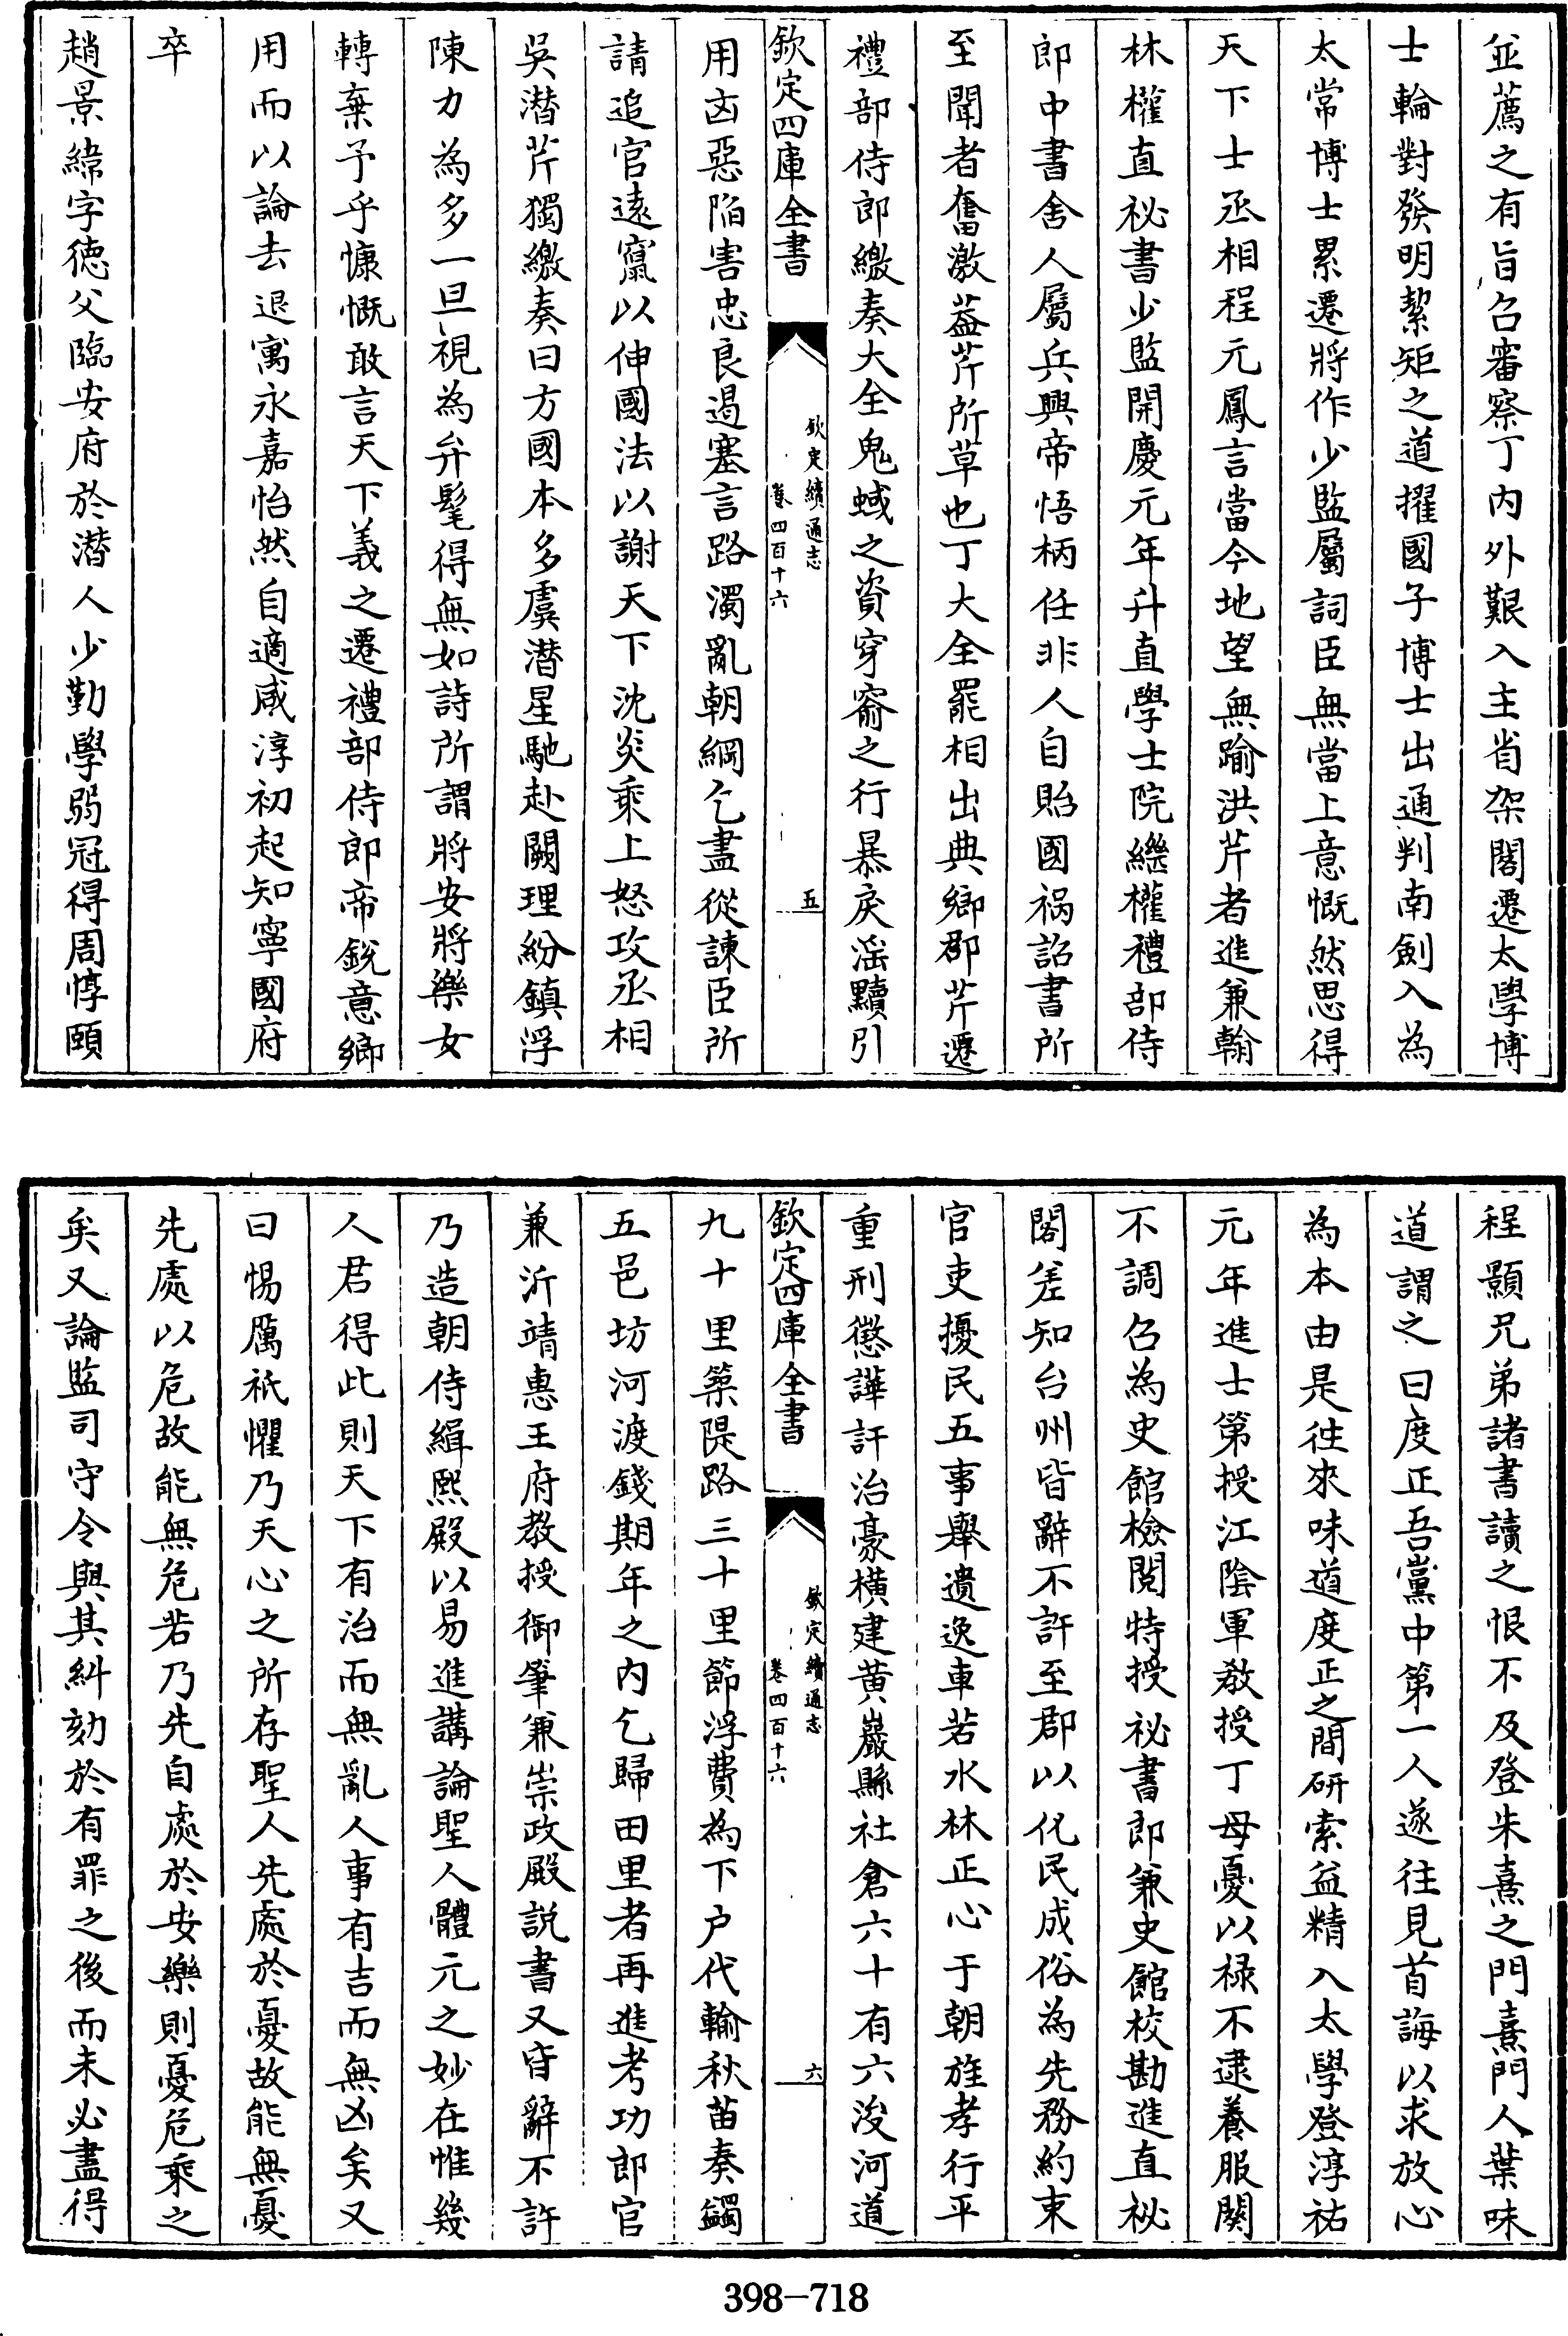 並薦之有旨召審察丁內外艱入主省架閣遷太學博
士輪對發明絜矩之道擢國子博士出通判南劍入為
太常博士累遷將作少監屬詞臣無當上意慨然思得
天下士丞相程元鳳言當今地望無踰洪芹者進兼翰
林權直祕書少監開慶元年升直學士院繼權禮部侍
郎中書舍人屬兵興帝悟柄任非人自貽國禍詔書所
至聞者奮激葢芹所草也丁大全罷相出典鄉郡芹遷
禮部侍郎繳奏大全鬼蜮之資穿窬之行暴戾滛黷引
欽定四庫全書
欽定續通志
卷四百十六
五
用凶惡陷害忠良遏塞言路濁亂朝綱乞盡從諫臣所
請追官遠竄以伸國法以謝天下沈炎乘上怒攻丞相
吳潛芹獨繳奏曰方國本多虞潛星馳赴闕理紛鎮浮
陳力為多一旦視為弁髦得無如詩所謂將安將樂女
轉棄予乎慷慨敢言天下義之遷禮部侍郎帝銳意鄉
用而以論去退寓永嘉怡然自適咸淳初起知寧國府
卒
趙景緯字德父臨安府於潛人少勤學弱冠得周惇頤
程顥兄弟諸書讀之恨不及登朱熹之門熹門人葉味
道謂之曰度正吾黨中第一人遂往見首誨以求放心
為本由是往來味道度正之間研索益精入太學登淳祐
元年進士第授江陰軍教授丁母憂以祿不逮養服闋
不調召為史館檢閱特授祕書郎兼史館校勘進直祕
閣差知台州皆辭不許至郡以化民成俗為先務約束
官吏擾民五事舉遺逸車若水林正心于朝旌孝行平
重刑懲譁訐治豪橫建黃巖縣社倉六十有六浚河道
欽定四庫全書
欽定續通志
卷四百十六
六
九十里築隄路三十里節浮費為下戶代輸秋苗奏蠲
五邑坊河渡錢期年之內乞歸田里者再進考功郎官
兼沂靖惠王府教授御筆兼崇政殿說書又皆辭不許
乃造朝侍緝熙殿以易進講論聖人體元之妙在惟幾
人君得此則天下有治而無亂人事有吉而無凶矣又
曰惕厲祇懼乃天心之所存聖人先處於憂故能無憂
先處以危故能無危若乃先自處於安樂則憂危乘之
矣又論監司守令與其糾劾於有罪之後而未必盡得
398-718